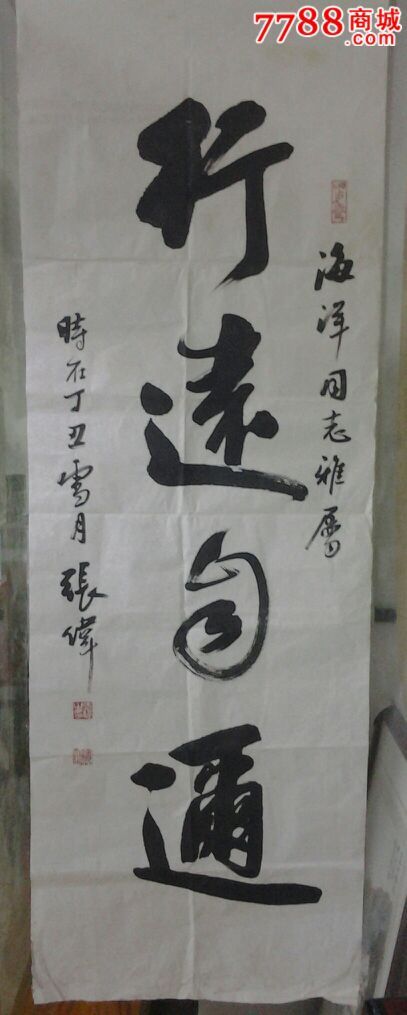 7788商城
.com
海洋同志雅属
行遠自邇
時在丁丑雪月 張偉